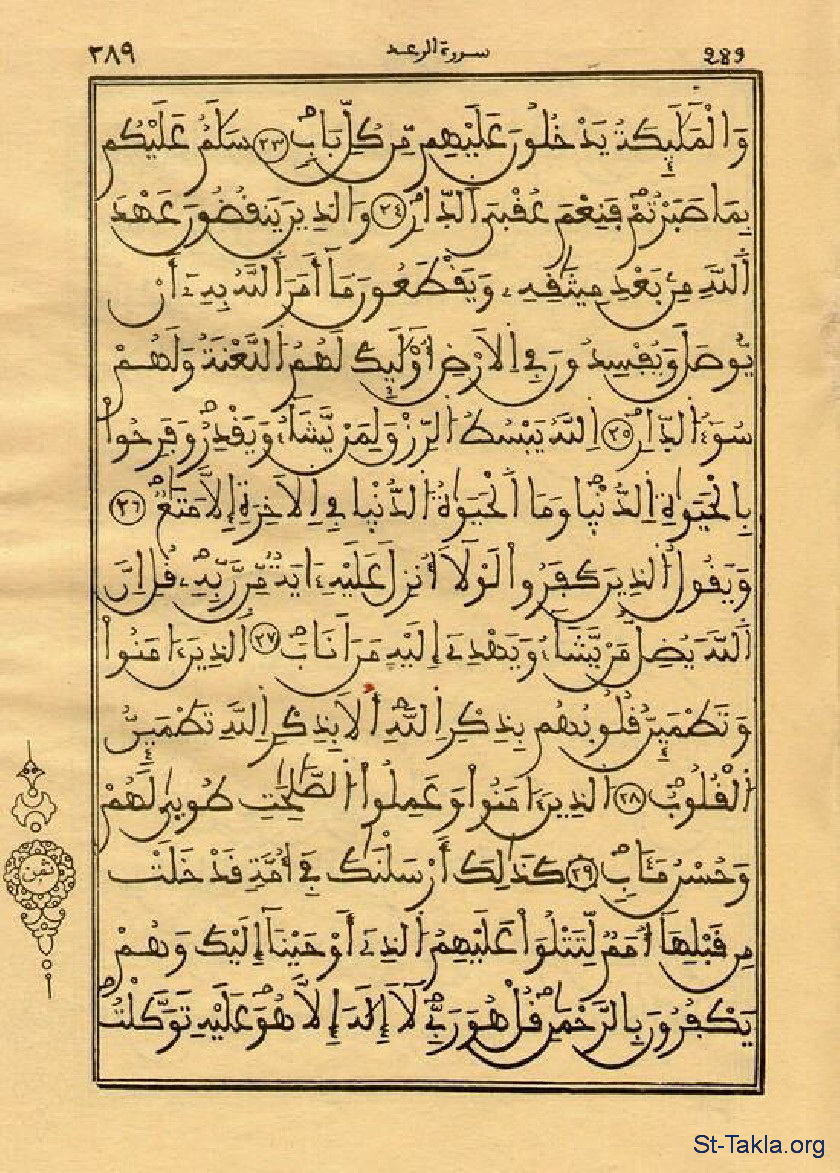 289 سورة الرعد ٢٨٩
وَالْمَلَٰٓئِكَةُ يَدْخُلُونَ عَلَيْهِم مِّن كُلِّ بَابٍ ٢٣ سَلَٰمٌ عَلَيْكُم
بِمَا صَبَرْتُمْ فَنِعْمَ عُقْبَى الدّارِ ٢٤ وَالذِينَ يَنقُضُونَ عَهْدَ
اَللَّهِ مِنۢ بَعْدِ مِيثَٰقِهِۦ وَيَقْطَعُونَ مَآ أَمَرَ اَللَّهُ بِهِۦٓ أَنْ
يُّوصَلَ وَيُفْسِدُونَ فِي اِلَارْضِ أُوْلَٰٓئِكَ لَهُمُ اللَّعْنَةُ وَلَهُمْ
سُوٓءُ الدّارِ ٢٥ اِللَّهُ يَبْسُطُ الرِّزْقَ لِمَنْ يَّشَآءُ وَيَقْدِرُ وَفَرِحُواْ
بِالْحَيَوٰةِ اِلدُّنْيا وَمَا اَلْحَيَوٰةُ الدُّنْيا فِي اِلَاخِرَةِ إِلَّا مَتَٰعٌ ٢٦
وَيَقُولُ الذِينَ كَفَرُواْ لَوْلَآ أُنزِلَ عَلَيْهِ ءَايَةٌ مِّن رَّبِّهِۦ قُلِ اِنَّ
اَللَّهَ يُضِلُّ مَنْ يَّشَآءُ وَيَهْدِےٓ إِلَيْهِ مَنَ اَنَابَ ٢٧ اَلذِينَ ءَامَنُواْ
وَتَطْمَئِنُّ قُلُوبُهُم بِذِكْرِ اِللَّهِ أَلَا بِذِكْرِ اِللَّهِ تَطْمَئِنُّ
اَلْقُلُوبُ ٢٨ الذِينَ ءَامَنُواْ وَعَمِلُواْ الصَّٰلِحَٰتِ طُوبىٰ لَهُمْ
وَحُسْنُ مَـَٔابٍ ٢٩ كَذَٰلِكَ أَرْسَلْنَٰكَ فِيٓ أُمَّةٍ قَدْ خَلَتْ
مِن قَبْلِهَآ أُمَمٌ لِّتَتْلُوَاْ عَلَيْهِمُ الذِےٓ أَوْحَيْنَآ إِلَيْكَ وَهُمْ
يَكْفُرُونَ بِالرَّحْمَٰنِ قُلْ هُوَ رَبِّي لَآ إِلَٰهَ إِلَّا هُوَ عَلَيْهِ تَوَكَّلْتُ
ثمن
St-Takla.org